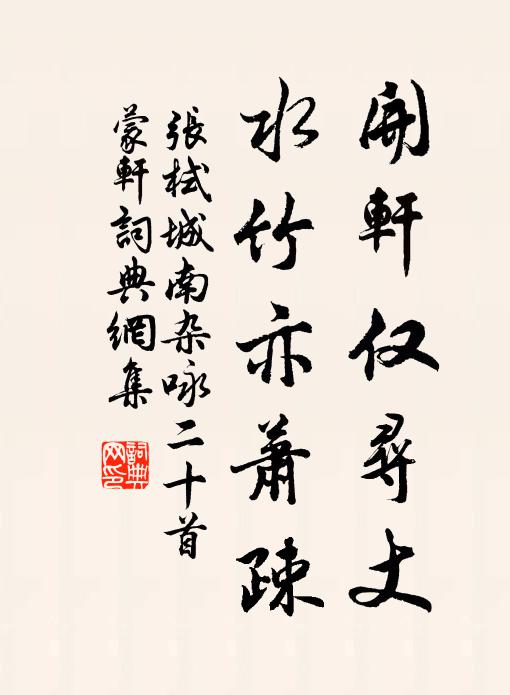 開軒仅尋丈
水竹亦蕭疎
張栻城南杂咏二十首
蒙軒詞典網集
詞典
网印